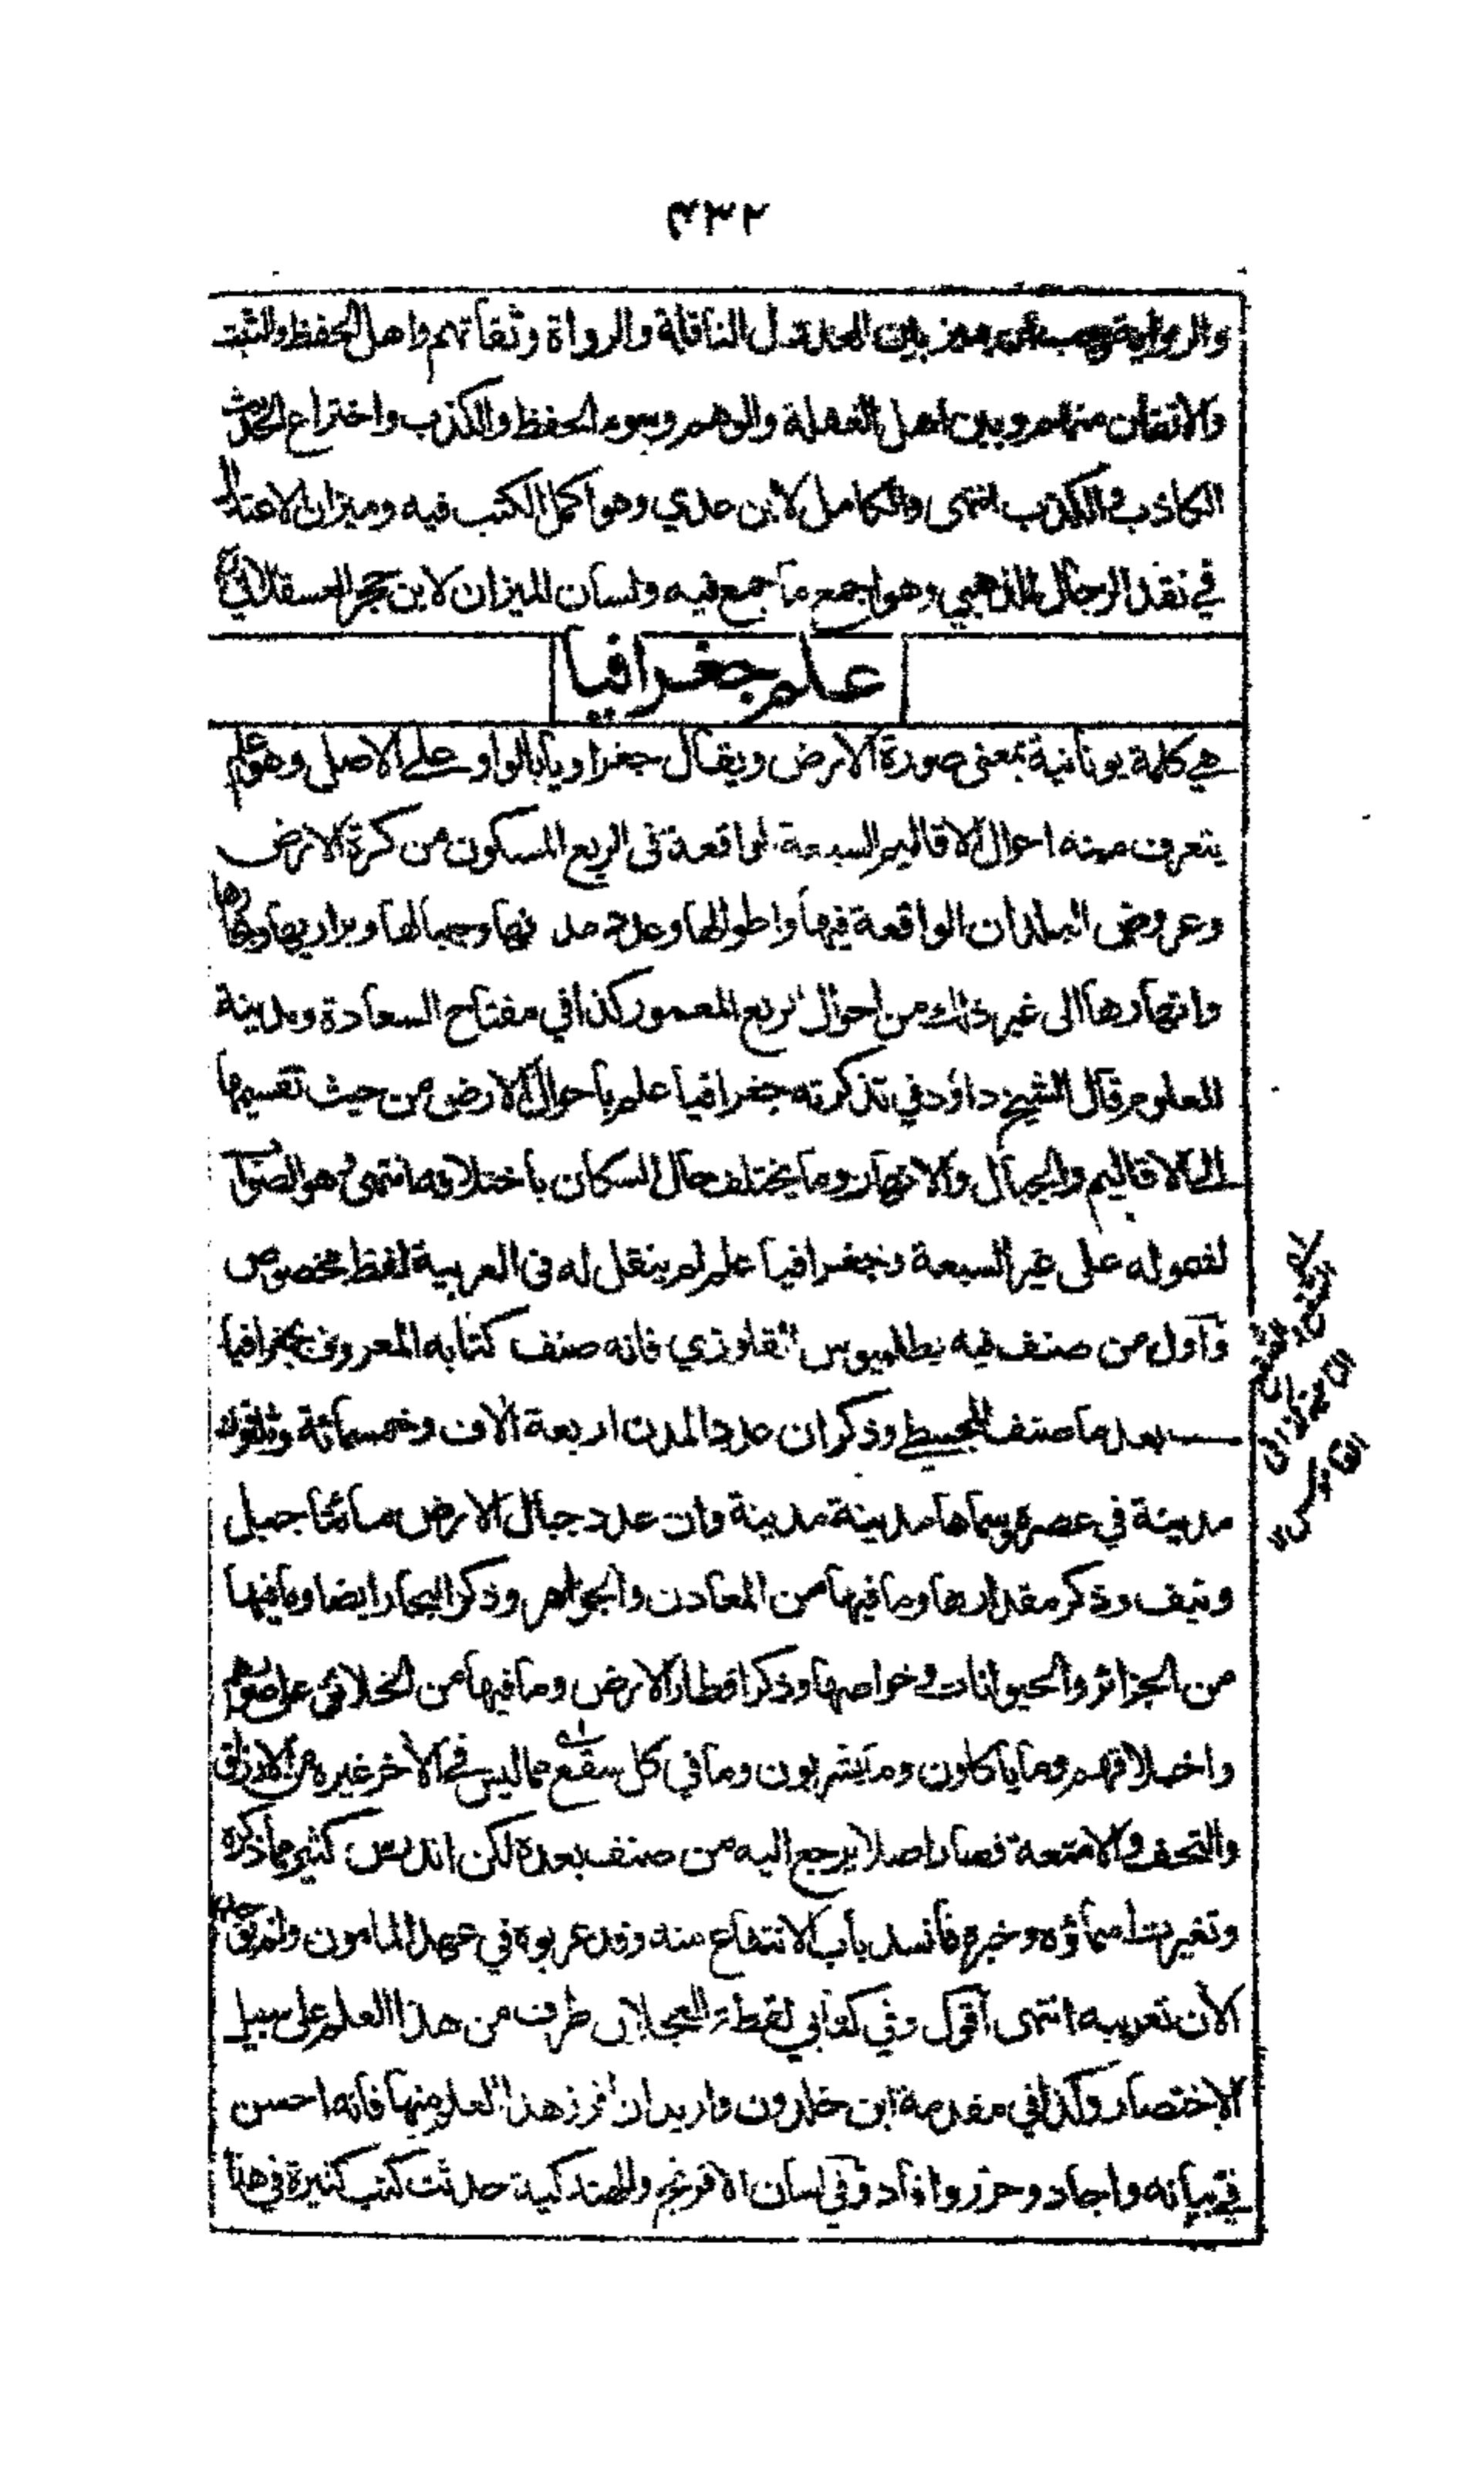 ٤٣٢
والرواية وجب أن يميز بين العدول الناقلة والرواة وثقاتهم واهل الحفظ والثبت
والاتقان منهم وبين اهل الغفلة والوهم وسوء الحفظ والكذب واختراع
الكاذب والكذب انتهى والكامل لابن عدي وهو اكمل الكتب فيه وميزان الاعتدال
في نقد الرجال للذهبي وهو اجمع ما جمع فيه ولسان الميزان لابن حجر العسقلاني
علم جغرافيا
هي كلمة يونانية بمعنى صورة الارض ويقال جغراويا بالواو على الاصل وهو علم
يتعرف منه احوال الاقاليم السبعة الواقعة فى الربع المسكون من كرة الارض
وعروض البلدان الواقعة فيها واطوالها وعدد مدنها وجبالها وبراريها وبحارها
وانهارها الى غير ذلك من احوال الربع المعمور كذا في مفتاح السعادة ومدينة
العلوم قال الشيخ داؤد في تذكرته جغرافيا علم باحوال الارض من حيث تقسيمها
الى الاقاليم والجبال والانهار وما يختلف حال السكان باختلافه انتهى وهو الصواب
لشموله على غير السبعة وجغرافيا علم لم ينقل له فى العربية لفظ مخصوص
وآول من صنف فيه بطلميوس القلوذي فانه صنف كتابه المعروف بجغرافيا
بعد ما صنف المجسطي وذكر ان عدد المدن اربعة آلاف وخمسمائة وثلثون
مدينة في عصره وسماها مدينة مدينة وان عدد جبال الارض مائتا جبل
ونيف وذكر مقدارها وما فيها من المعادن والجواهر وذكر البحار ايضا وما فيها
من الجزائر والحيوانات وخواصها وذكر اقطار الارض وما فيها من الخلائق على صورهم
واخلاقهم وما ياكلون وما يشربون وما في كل سقع مما ليس في الآخر غيره من الارزاق
والتحف والامتعة فصار اصلا يرجع اليه من صنف بعده لكن اندرس كثير مما ذكره
وتغيرت اسماؤه وخبره فانسد باب الانتفاع منه وقد عربوه في عهد المامون ولم يوجد
الآن تعريبه انتهى آقول وفي كتابي لقطة العجلان طرف من هذا العلم على سبيل
الاختصار وكذا في مقدمة ابن خلدون واريد ان افرز هذا العلم منها فانه احسن
في بيانه واجاد وحرر وافاد وفي لسان الافرنج والهندكية حدثت كتب كثيرة في هذا